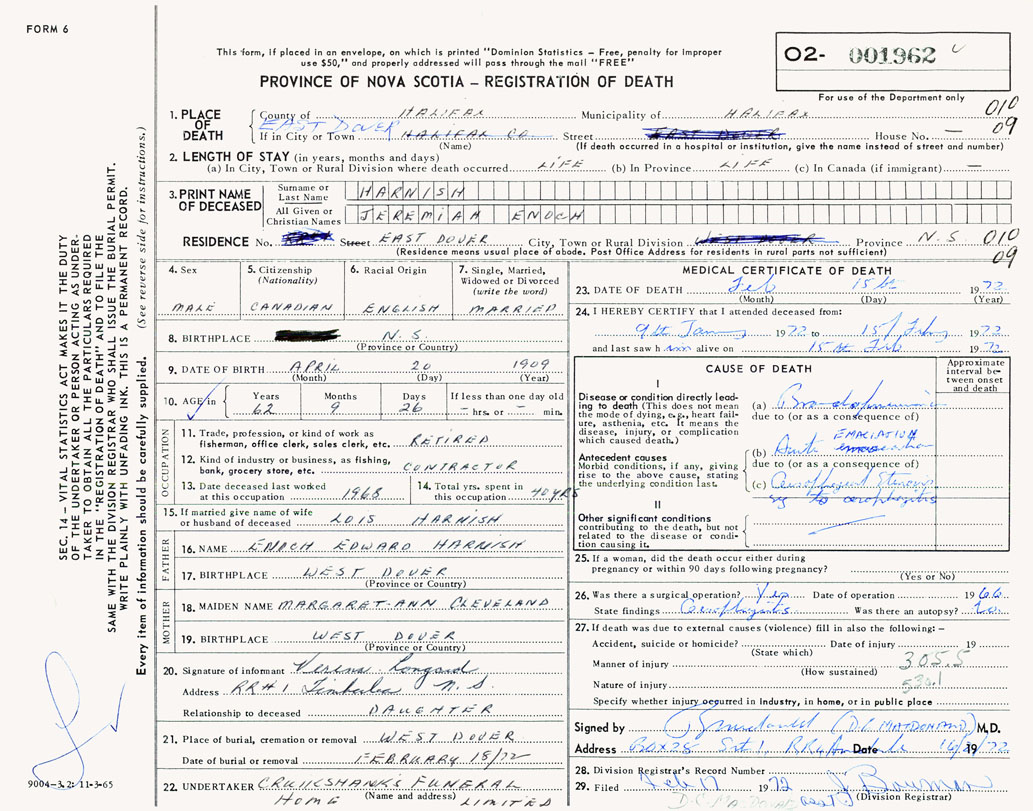 FORM 6
This form, if placed in an envelope, on which is printed "Dominion Statistics – Free, penalty for improper
use $50," and properly addressed will pass through the mail "FREE"
PROVINCE OF NOVA SCOTIA – REGISTRATION OF DEATH
02- 001962
For use of the Department only
010
09
1. PLACE OF DEATH
County of HALIFAX Municipality of HALIFAX
EAST DOVER
If in City or Town HALIFAX CO Street House No. —
(Name) (If death occurred in a hospital or institution, give the name instead of street and number)
2. LENGTH OF STAY (in years, months and days)
(a) In City, Town or Rural Division where death occurred LIFE (b) In Province LIFE (c) In Canada (if immigrant) —
3. PRINT NAME OF DECEASED
Surname or Last Name HARNISH
All Given or Christian Names JEREMIAH ENOCH
RESIDENCE No. Street EAST DOVER City, Town or Rural Division Province N.S 010
(Residence means usual place of abode. Post Office Address for residents in rural parts not sufficient) 09
4. Sex
MALE
5. Citizenship
(Nationality)
CANADIAN
6. Racial Origin
ENGLISH
7. Single, Married,
Widowed or Divorced
(write the word)
MARRIED
8. BIRTHPLACE N.S.
(Province or Country)
9. DATE OF BIRTH APRIL 20 1909
(Month) (Day) (Year)
10. AGE in
Years Months Days If less than one day old
62 9 26 – hrs. or – min.
OCCUPATION
11. Trade, profession, or kind of work as
fisherman, office clerk, sales clerk, etc. RETIRED
12. Kind of industry or business, as fishing,
bank, grocery store, etc. CONTRACTOR
13. Date deceased last worked
at this occupation 1968
14. Total yrs. spent in
this occupation 40 YRS
15. If married give name of wife
or husband of deceased LOIS HARNISH
FATHER
16. NAME ENOCH EDWARD HARNISH
17. BIRTHPLACE WEST DOVER
(Province or Country)
MOTHER
18. MAIDEN NAME MARGARET-ANN CLEVELAND
19. BIRTHPLACE WEST DOVER
(Province or Country)
20. Signature of informant
Address RR#1 Timberlea N.S.
Relationship to deceased DAUGHTER
21. Place of burial, cremation or removal WEST DOVER
Date of burial or removal FEBRUARY 18/72
22. UNDERTAKER CRUIKSHANK'S FUNERAL
(Name and address)
HOME LIMITED
MEDICAL CERTIFICATE OF DEATH
23. DATE OF DEATH Feb 15th 1972
(Month) (Day) (Year)
24. I HEREBY CERTIFY that I attended deceased from:
9th 1972 to 15 Feb 1972
and last saw him alive on 15th Feb 1972
CAUSE OF DEATH
Approximate
interval be-
tween onset
and death
I
Disease or condition directly lead-
ing to death (This does not mean
the mode of dying, e.g., heart fail-
ure, asthenia, etc. It means the
disease, injury, or complication
which caused death.)
(a)
due to (or as a consequence of)
Antecedent causes
Morbid conditions, if any, giving
rise to the above cause, stating
the underlying condition last.
EMACIATION
(b) Acute
due to (or as a consequence of)
(c)
to
II
Other significant conditions
contributing to the death, but not
related to the disease or condi-
tion causing it.
25. If a woman, did the death occur either during
pregnancy or within 90 days following pregnancy?
(Yes or No)
26. Was there a surgical operation? Yes Date of operation 1966
State findings Was there an autopsy?
27. If death was due to external causes (violence) fill in also the following: –
Accident, suicide or homicide? Date of injury 19
(State which)
Manner of injury 305.5
(How sustained)
Nature of injury 530.1
Specify whether injury occurred in industry, in home, or in public place
Signed by (D.C. MACDONALD) M.D.
Address BOX 28 Site 1, Date 1972
28. Division Registrar's Record Number
29. Filed Feb 17 1972 J Bowman
(Division Registrar)
SEC. 14 – VITAL STATISTICS ACT MAKES IT THE DUTY
OF THE UNDERTAKER OR PERSON ACTING AS UNDER-
TAKER TO OBTAIN ALL THE PARTICULARS REQUIRED
IN THE "REGISTRATION OF DEATH" AND TO FILE THE
SAME WITH THE DIVISION REGISTRAR WHO SHALL ISSUE THE BURIAL PERMIT.
WRITE PLAINLY WITH UNFADING INK. THIS IS A PERMANENT RECORD.
Every item of information should be carefully supplied. (See reverse side for instructions.)
9004-3.2: 11-3-65